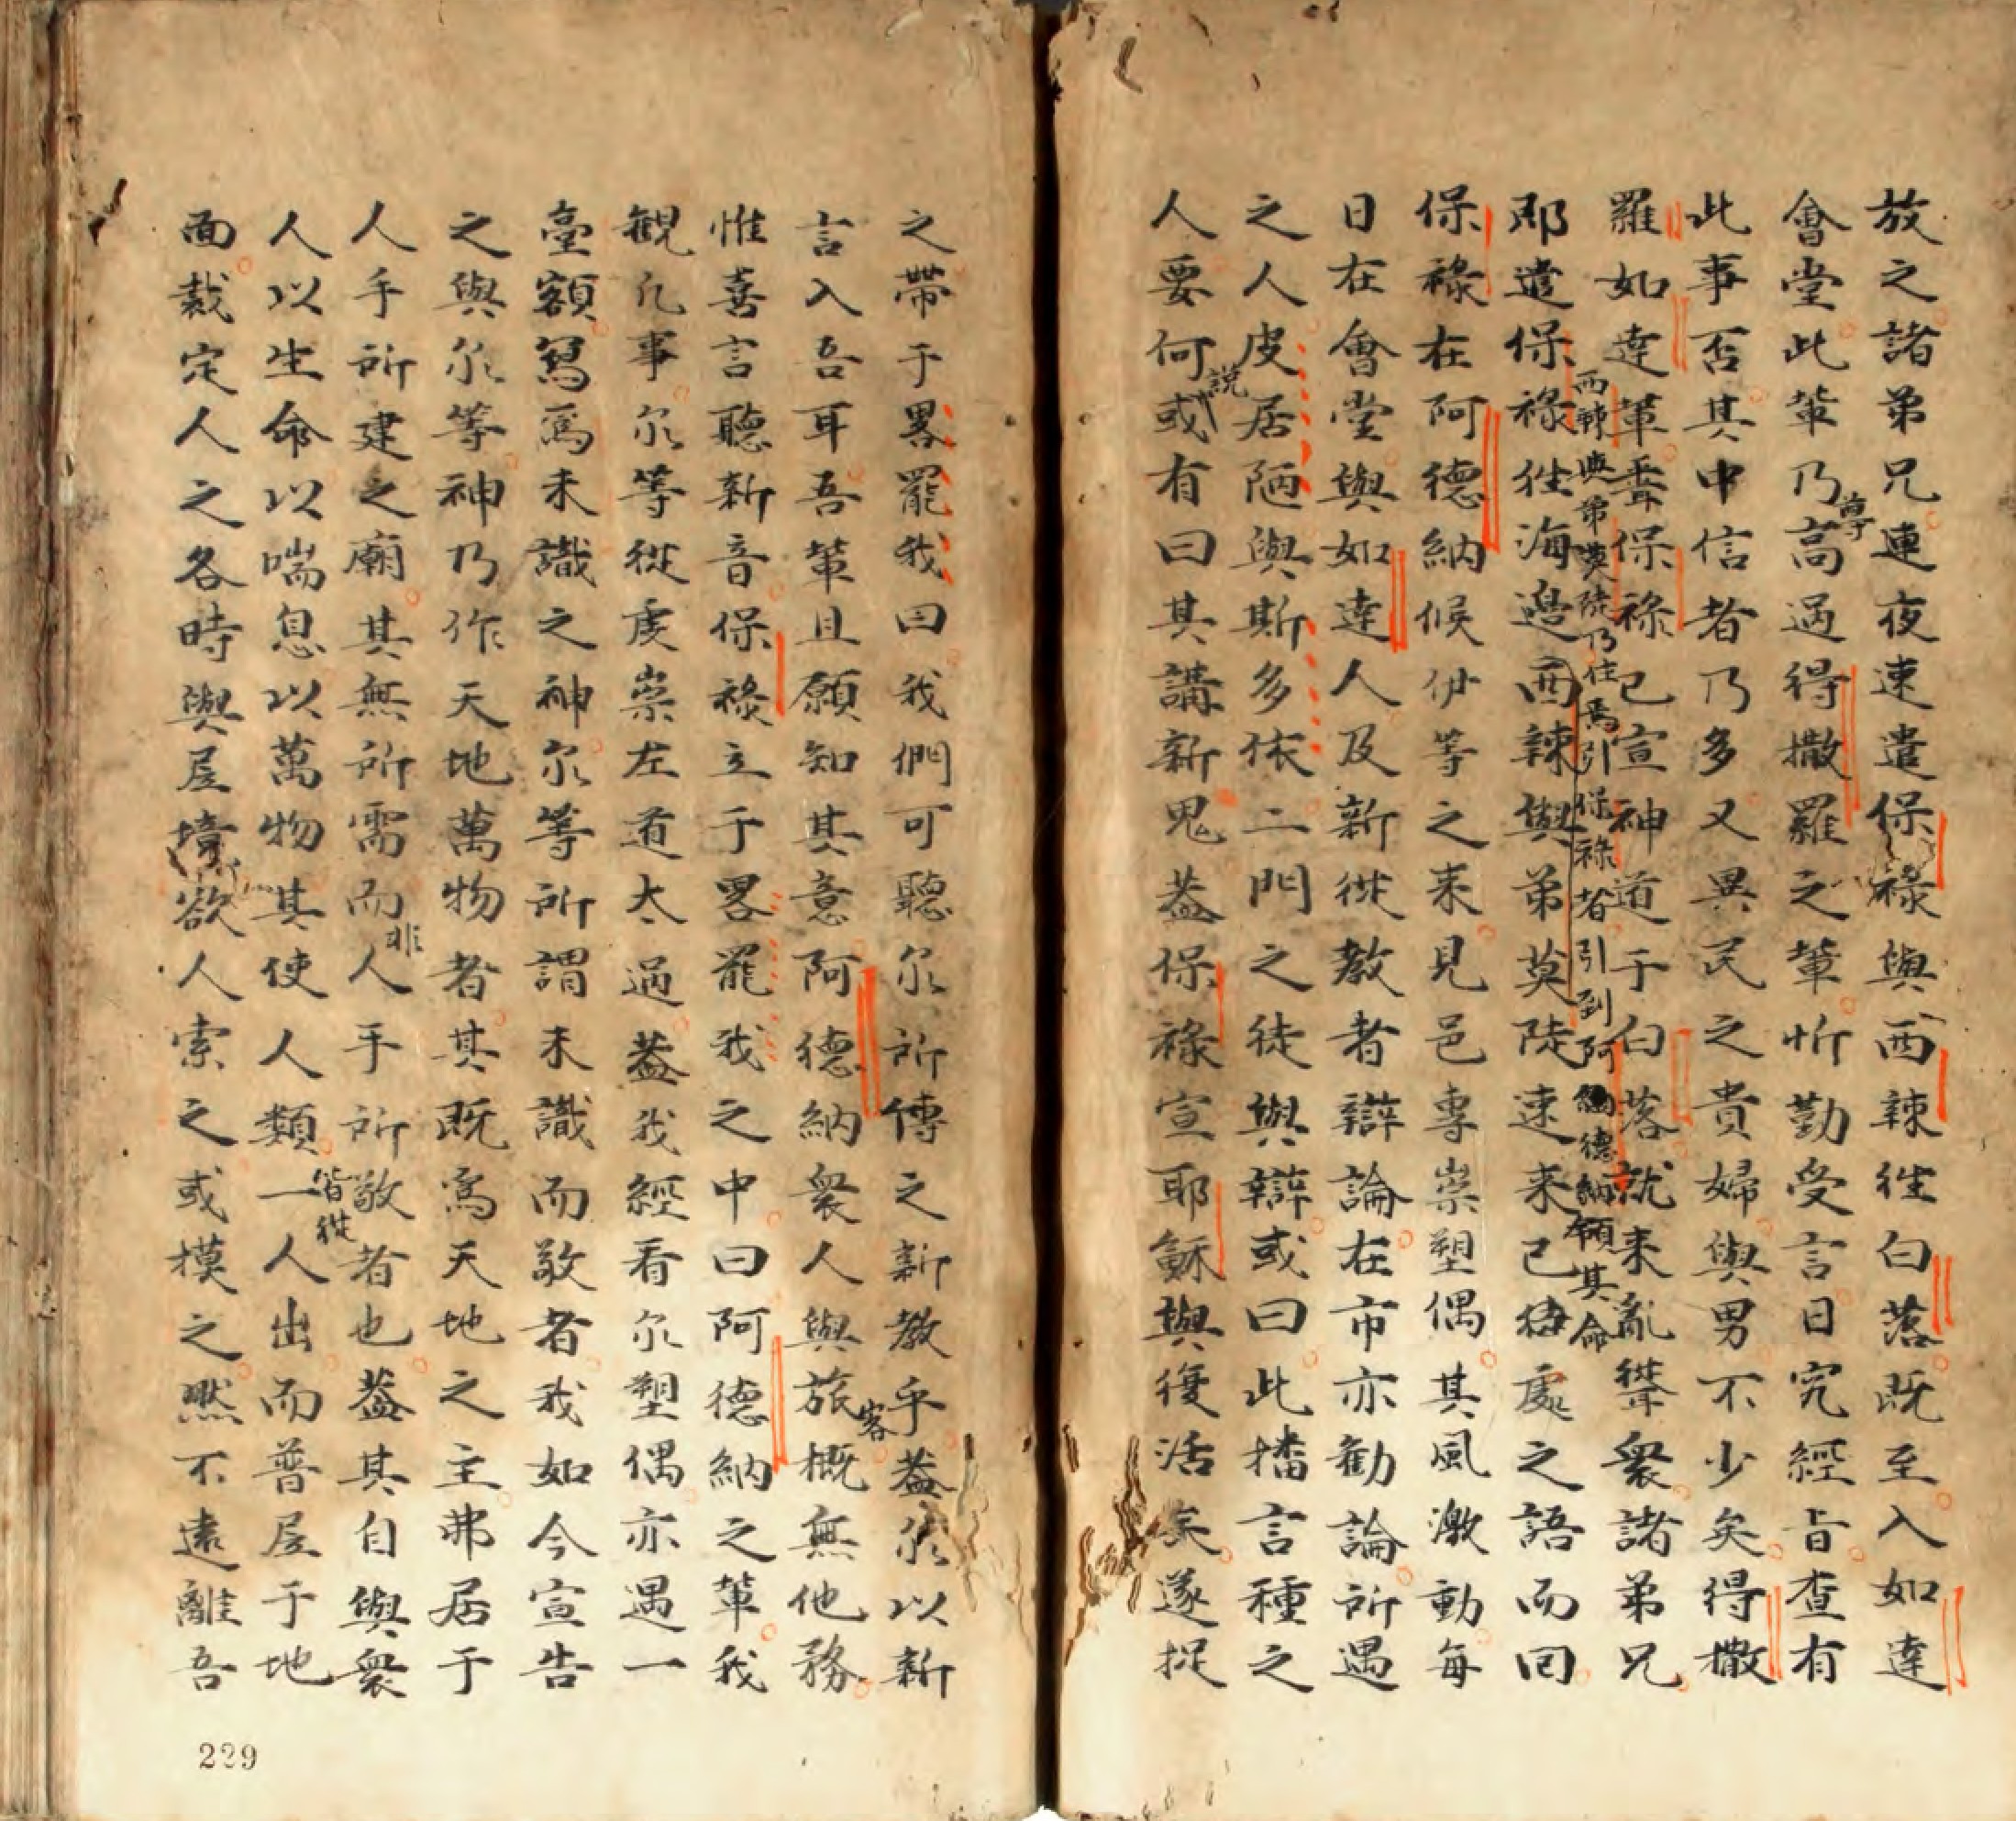 放之諸弟兄連夜速遣保祿與西辣徃白落既至入如達
會堂此輩乃高過得撒羅之輩忻勤受言日究經旨查有
尊
此事否其中信者乃多又異民之貴婦與男不少矣得撒
羅如達輩聞保祿已宣神道于白落就来亂聳衆諸弟兄
西辣與弟莫陡乃住焉引保祿者引到阿德納領其命
即遣保祿徃海邉西辣與弟莫陡速来己處之語而回
保祿在阿德納候伊等之来見邑專崇塑偶其風激動每
日在會堂與如達人及新從教者辯論在市亦勸論所遇
之人皮居陋與斯多依二門之徒與辯或曰此播言種之
說
人要何或有曰其講新鬼葢保祿宣耶穌與復活矣遂捉
之帶于畧罷我曰我們可聽尔所傳之新教乎葢尔以新
言入吾耳吾輩且願知其意阿德納衆人與旅概無他務
客
惟喜言聽新音保祿立于畧罷我之中曰阿德納之輩我
觀凡事尔等從虔崇左道太過葢我經看尔塑偶亦遇一
臺額寫為未識之神尔等所謂未識而敬者我如今宣告
之與尔等神乃作天地萬物者其既為天地之主弗居于
人手所建之廟其無所需而人手所敬者也葢其自與衆
非
人以生命以喘息以萬物其使人類一人出而普居于地
皆從
面裁定人之各時與居境欲人索之或摸之然不遠離吾
229